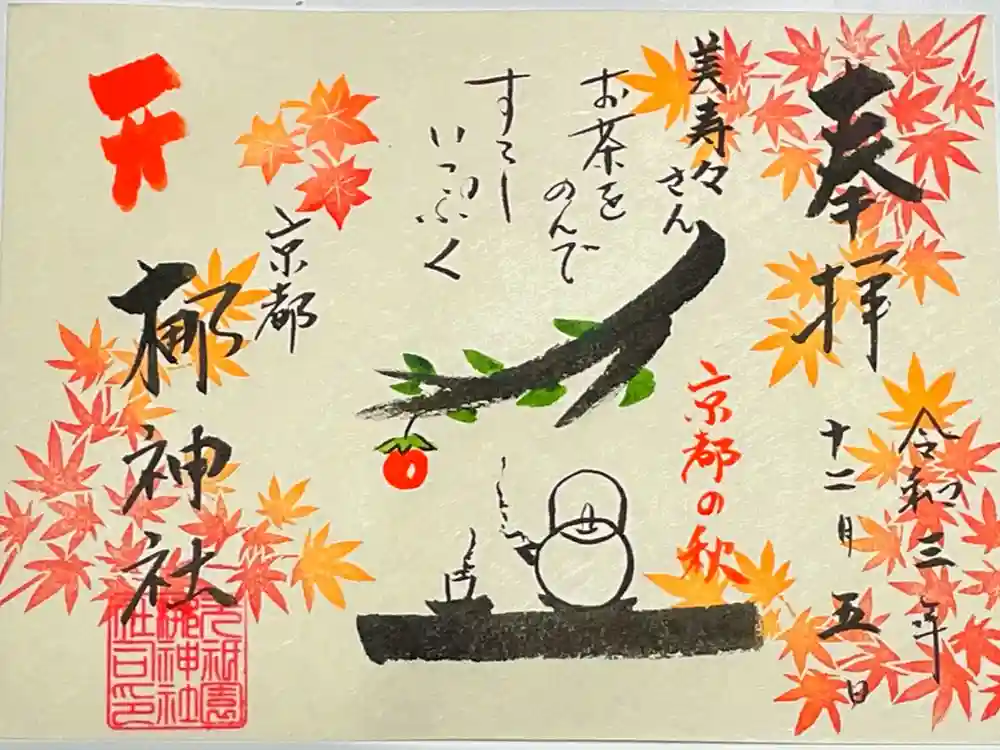 奉拝
令和三年
十二月五日
美寿々
さん
お茶を
のんで
すこし
いっぷく
京都の秋
京都
梛神社
元祇園
梛神社
社司印